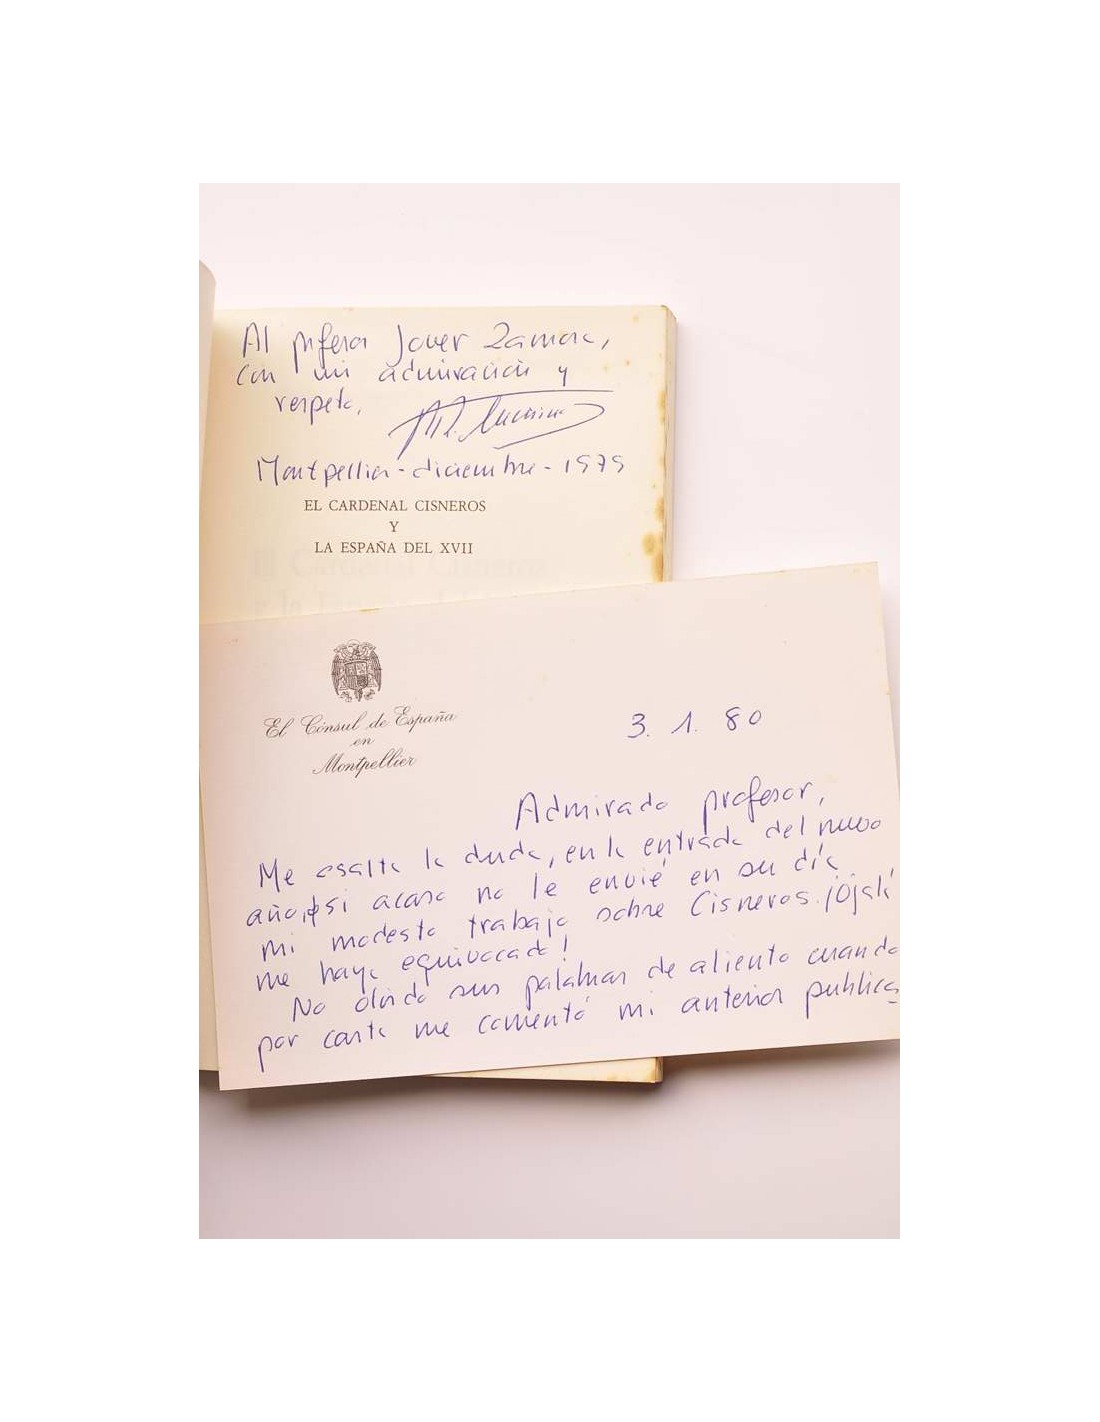 Al profesor Jover Zamora,
con mi admiración y
respeto,
Montpellier - diciembre - 1979
EL CARDENAL CISNEROS
Y
LA ESPAÑA DEL XVII
El Cónsul de España
en
Montpellier
3. 1. 80
Admirado profesor,
Me asalta la duda, en la entrada del nuevo
año, si acaso no le envié en su día
mi modesto trabajo sobre Cisneros. ¡Ojalá
me haya equivocado!
No olvido sus palabras de aliento cuando
por carta me comentó mi anterior publica